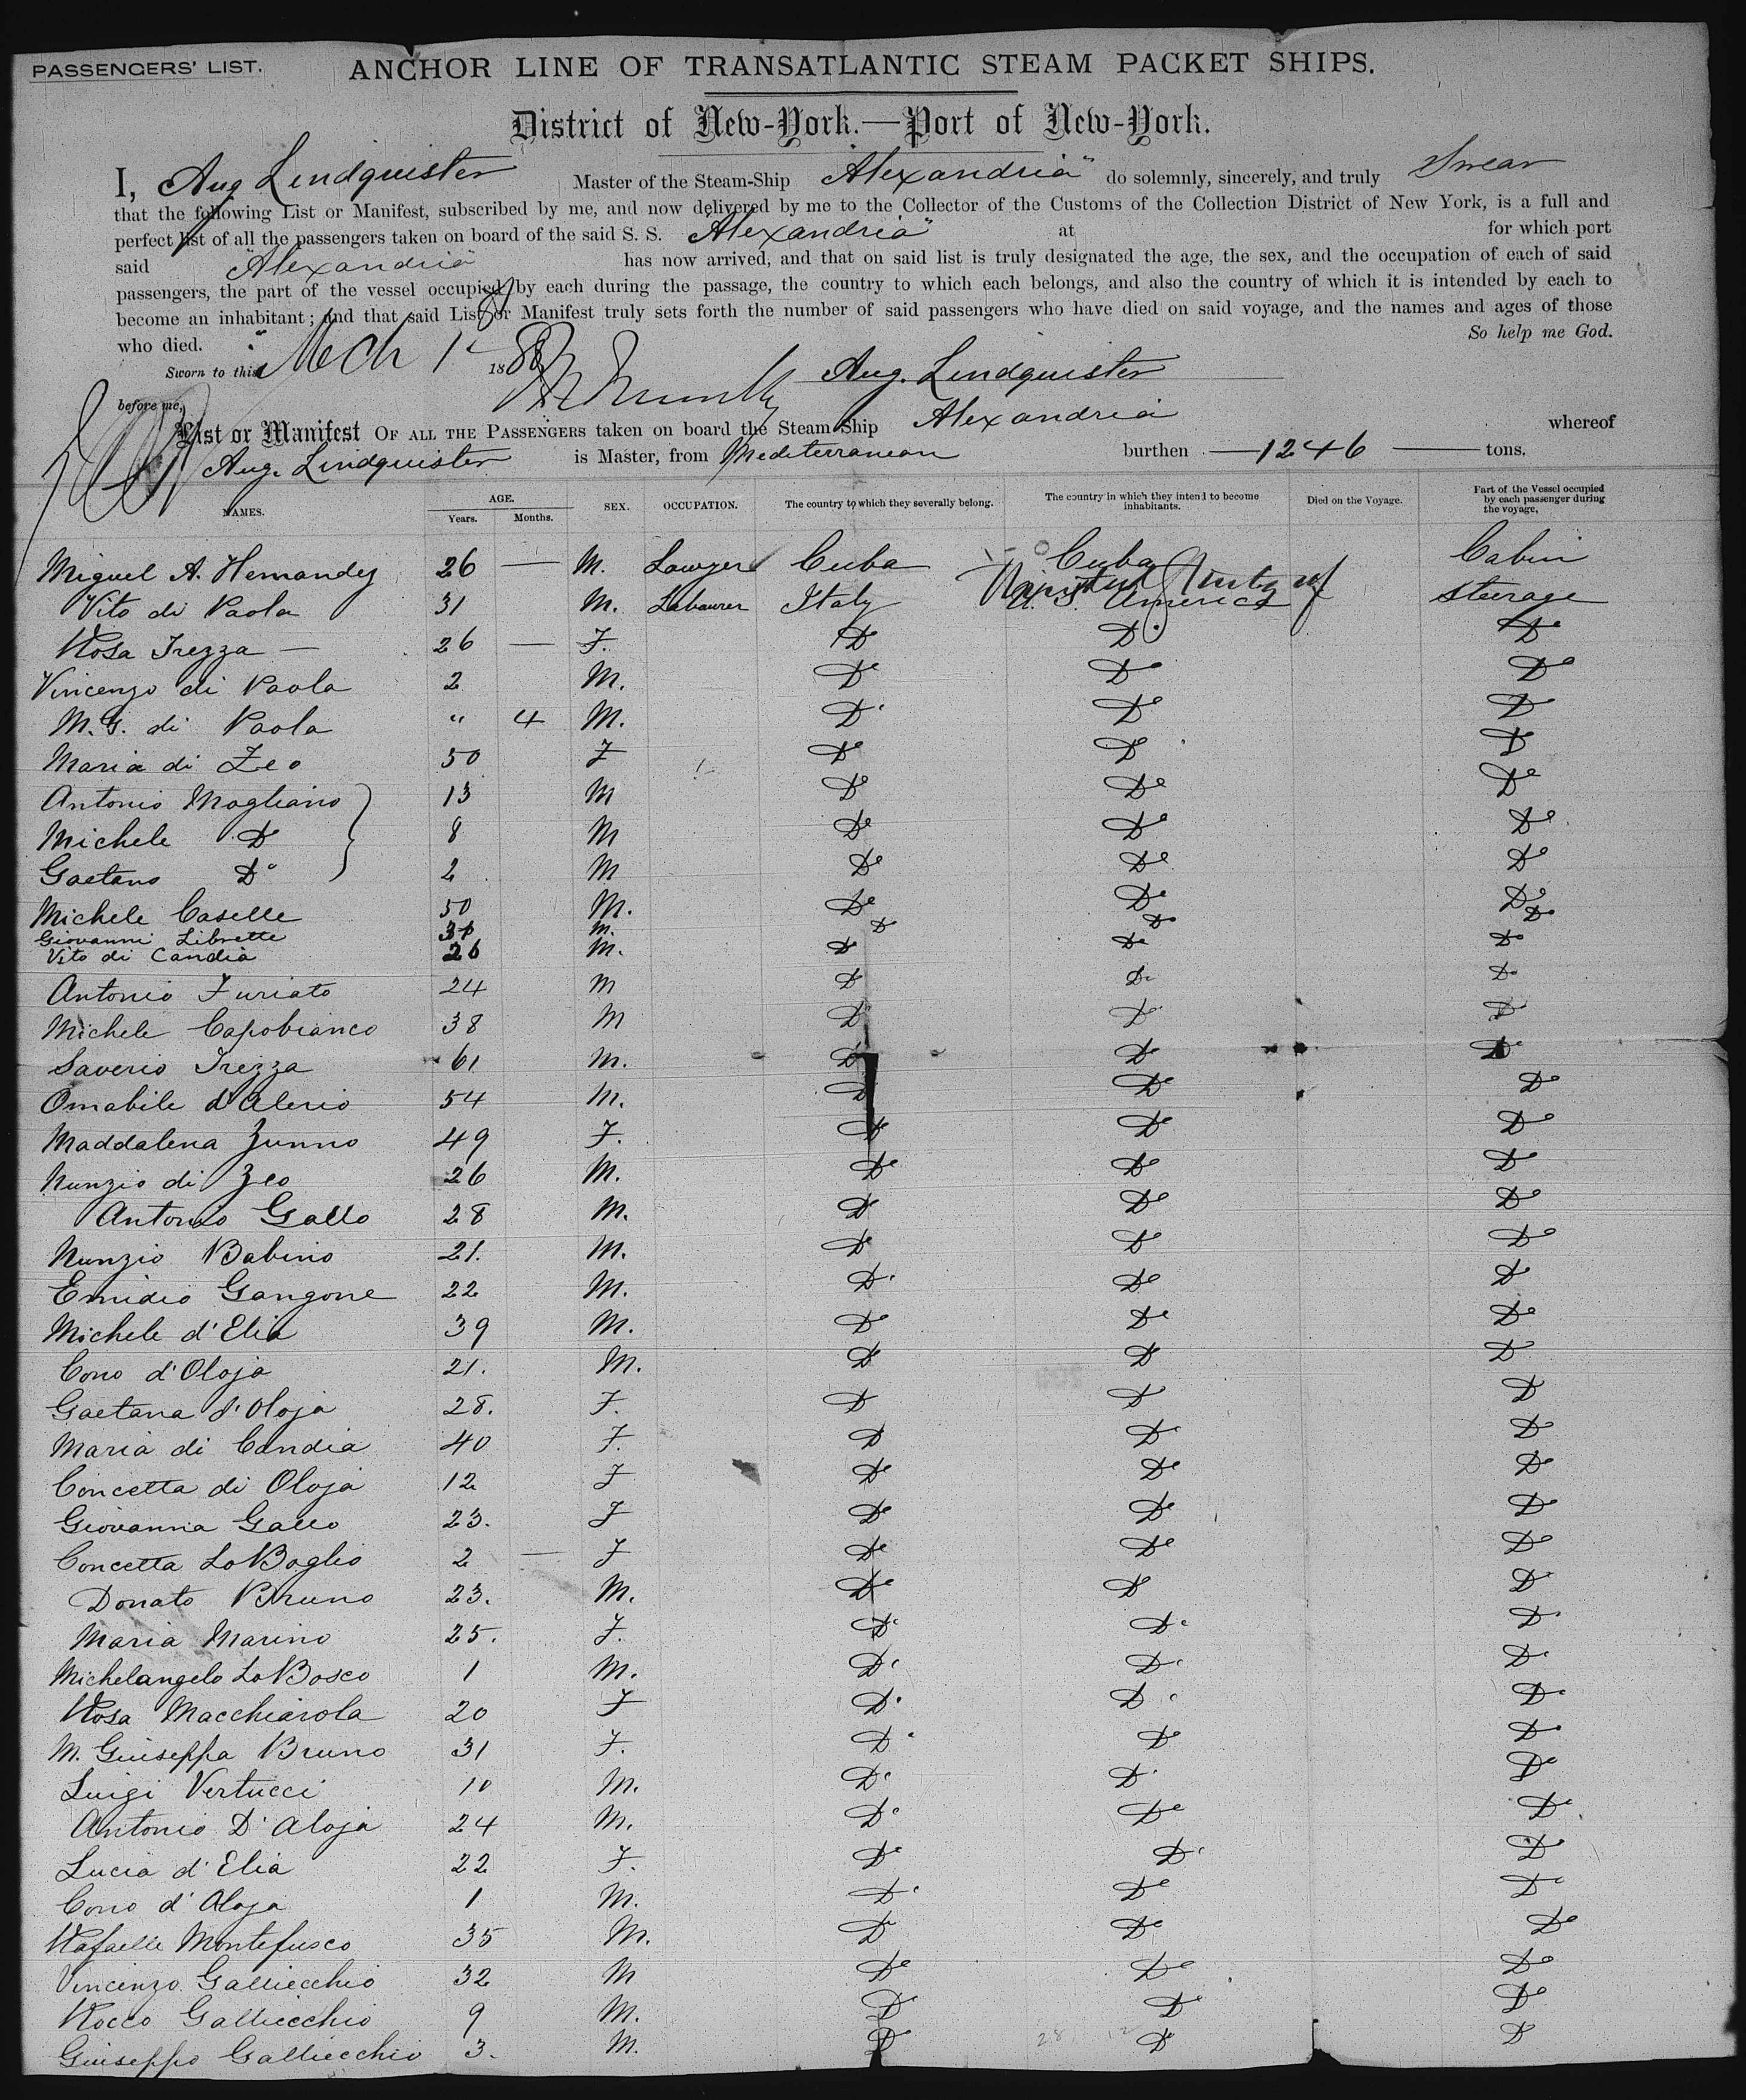 PASSENGERS' LIST.
ANCHOR LINE OF TRANSATLANTIC STEAM PACKET SHIPS.
District of New-York.—Port of New-York.
I, Aug Lindquister Master of the Steam-Ship "Alexandria" do solemnly, sincerely, and truly Swear
that the following List or Manifest, subscribed by me, and now delivered by me to the Collector of the Customs of the Collection District of New York, is a full and
perfect list of all the passengers taken on board of the said S. S. "Alexandria" at for which port
said "Alexandria" has now arrived, and that on said list is truly designated the age, the sex, and the occupation of each of said
passengers, the part of the vessel occupied by each during the passage, the country to which each belongs, and also the country of which it is intended by each to
become an inhabitant; and that said List or Manifest truly sets forth the number of said passengers who have died on said voyage, and the names and ages of those
who died. So help me God.
Sworn to this Mch 1 188
Aug. Lindquister
before me,
List or Manifest OF ALL THE PASSENGERS taken on board the Steam Ship Alexandria whereof
Aug. Lindquister is Master, from Mediterranean burthen 1246 tons.
NAMES. AGE. Years. Months. SEX. OCCUPATION. The country to which they severally belong. The country in which they intend to become inhabitants. Died on the Voyage. Part of the Vessel occupied by each passenger during the voyage.
Miguel A. Hernandez 26 — M. Lawyer Cuba Cuba Cabin
Vito di Paola 31 M. Labourer Italy U. S. America Steerage
Rosa Trezza — 26 — F. Do Do Do
Vincenzo di Paola 2 M. Do Do Do
M. G. di Paola " 4 M. Do Do Do
Maria di Zeo 50 F Do Do Do
Antonio Mogliano 13 M Do Do Do
Michele Do 8 M Do Do Do
Gaetano Do 2 M Do Do Do
Michele Caselle 50 M. Do Do Do
Giovanni Librette M. Do Do Do
Vito di Candia 26 M. Do Do Do
Antonio Furiato 24 M Do Do Do
Michele Capobianco 38 M Do Do Do
Saverio Trezza 61 M. Do Do Do
Omabile d'Alerio 54 M. Do Do Do
Maddalena Zunno 49 F. Do Do Do
Nunzio di Zeo 26 M. Do Do Do
Antonio Gallo 28 M. Do Do Do
Nunzio Babino 21. M. Do Do Do
Emidio Gangone 22 M. Do Do Do
Michele d'Elia 39 M. Do Do Do
Cono d'Oloja 21. M. Do Do Do
Gaetana d'Oloja 28. F. Do Do Do
Maria di Candia 40 F. Do Do Do
Concetta di Oloja 12 F Do Do Do
Giovanna Gallo 23. F Do Do Do
Concetta LoBoglio 2 — F Do Do Do
Donato Bruno 23. M. Do Do Do
Maria Marino 25. F. Do Do Do
Michelangelo LoBosco 1 M. Do Do Do
Rosa Macchiarola 20 F Do Do Do
M. Giuseppa Bruno 31 F. Do Do Do
Luigi Vertucci 10 M. Do Do Do
Antonio D'Aloja 24 M. Do Do Do
Lucia d'Elia 22 F. Do Do Do
Cono d'Aloja 1 M. Do Do Do
Rafaelle Montefusco 35 M. Do Do Do
Vincenzo Galliecchio 32 M Do Do Do
Rocco Galliecchio 9 M. Do Do Do
Giuseppe Galliecchio 3. M. Do Do Do